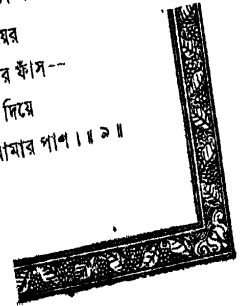 য়ের
র ফাঁস--
দিয়ে
ামার পাশ।॥ ৯ ॥